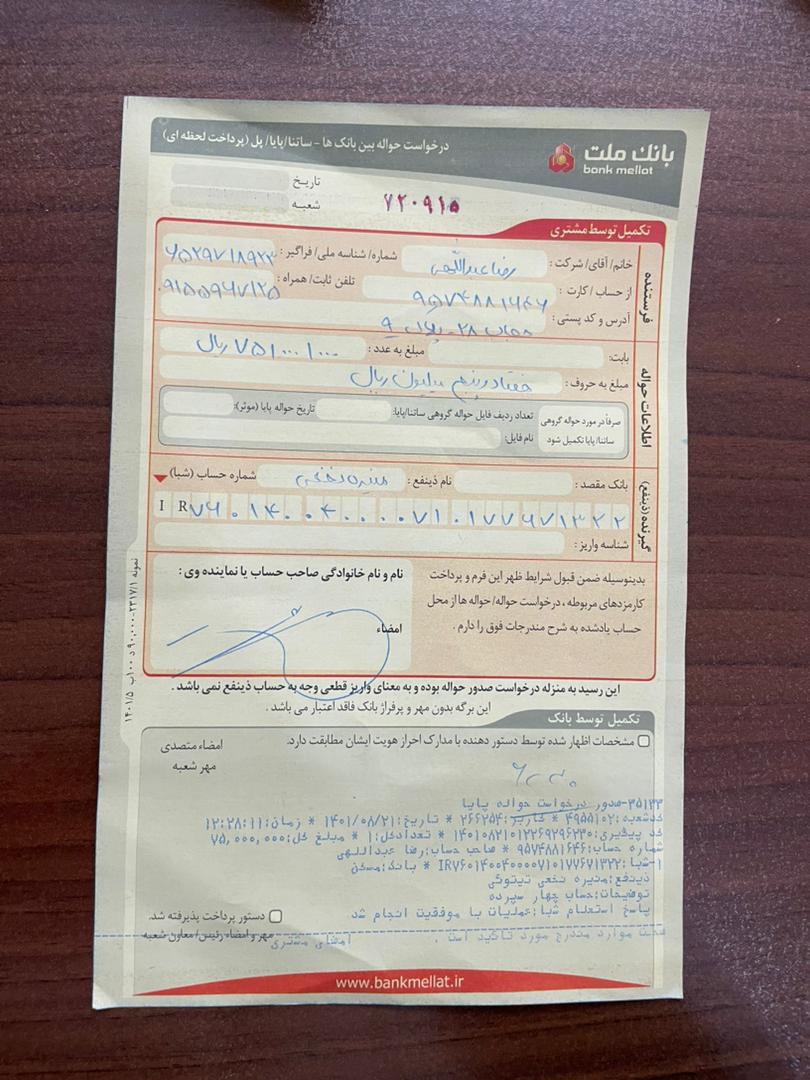 بانک ملت
bank mellat
درخواست حواله بین بانک ها - ساتنا/پایا/ پل (پرداخت لحظه ای)
تاریخ
شعبه
۷۲۰۹۱۵
تکمیل توسط مشتری
فرستنده
خانم/ آقای/ شرکت: رضا عبداللهی شماره/ شناسه ملی/ فراگیر:
از حساب/ کارت: ۹۵۷۴۸۸۱۶۴۶ تلفن ثابت/ همراه: ۰۹۱۵۵۹۶۷۱۲۵
آدرس و کد پستی: ۲۸ - پلاک ۹
اطلاعات حواله
بابت: مبلغ به عدد: ۷۵/۰۰۰/۰۰۰ ریال
مبلغ به حروف: هفتاد و پنج میلیون ریال
صرفاً در مورد حواله گروهی ساتنا/ پایا تکمیل شود
تعداد ردیف فایل حواله گروهی ساتنا/پایا: تاریخ حواله پایا (موثر):
نام فایل:
گیرنده (ذینفع)
بانک مقصد: نام ذینفع: منیره نخعی شماره حساب (شبا)
IR۷۶۰۱۴۰۰۴۰۰۰۰۷۱۰۱۷۷۶۷۱۳۲۲
شناسه واریز:
بدینوسیله ضمن قبول شرایط ظهر این فرم و پرداخت
کارمزدهای مربوطه، درخواست حواله/ حواله ها از محل
حساب یادشده به شرح مندرجات فوق را دارم.
نام و نام خانوادگی صاحب حساب یا نماینده وی:
امضاء
این رسید به منزله درخواست صدور حواله بوده و به معنای واریز قطعی وجه به حساب ذینفع نمی باشد.
این برگه بدون مهر و پرفراژ بانک فاقد اعتبار می باشد.
تکمیل توسط بانک
مشخصات اظهار شده توسط دستور دهنده با مدارک احراز هویت ایشان مطابقت دارد.
امضاء متصدی
مهر شعبه
۳۵۱۳۳-صدور درخواست حواله پایا
کدشعبه:۴۹۵۵۱۰۲ * کاربر:۲۶۶۲۵۴ * تاریخ:۱۴۰۱/۰۸/۲۱ * زمان:۱۲:۲۸:۱۱
کد پیگیری:۱۴۰۱۰۸۲۱۰۱۲۲۶۹۲۹۶۲۳۰ * تعدادکل:۱ * مبلغ کل:۷۵,۰۰۰,۰۰۰
شماره حساب:۹۵۷۴۸۸۱۶۴۶ * صاحب حساب:رضا عبداللهی
۱-شبا:IR۷۶۰۱۴۰۰۴۰۰۰۰۷۱۰۱۷۷۶۷۱۳۲۲ * بانک:مسکن
ذینفع:منیره نخعی تیتوگی
توضیحات:حساب چهار سپرده
پاسخ استعلام شبا:عملیات با موفقیت انجام شد
دستور پرداخت پذیرفته شد.
مهر و امضاء رئیس/ معاون شعبه
صحت موارد مندرج مورد تاکید است . امضای مشتری
www.bankmellat.ir